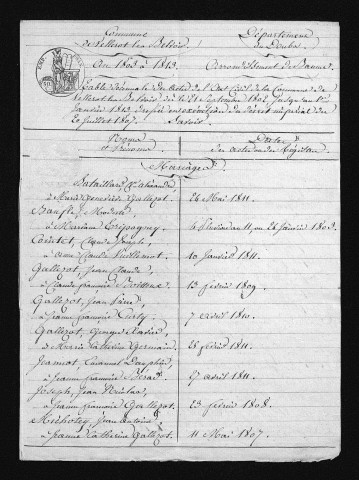 Commune
de Vellerot les Belvoir
Département
du Doubs
An 1803 à 1813.
Arrondissement de Baume
Table décennale des Actes de l'Etat Civil de la Commune de
Vellerot les Belvoir dès le 21 Septembre 1802 jusqu'au 1er
Janvier 1813 dressée en exécution du décret impérial du
20 Juillet 1807. Savoir
Noms
et Prénoms
Dates
des actes ou des Registres
Mariages
Bataillard,
à Marie Geneviève Gallezot. 26 Mai 1811.
Modeste
à Marianne an 11 ou 26 Janvier 1803.
Claude Joseph
à Anne Claude Vuillemot 10 Janvier 1811.
Gallezot, Jean Claude,
à Claude françoise 13 février 1809.
Gallezot, Jean Pierre
à Jeanne françoise Curty. 7 avril 1810.
Gallezot, Georges
à Marie Catherine Germain 28 février 1811.
Jeannot, Emanuel Dauphin
à Jeanne françoise 27 avril 1811.
Joseph, Jean Nicolas,
à Jeanne françoise Gallezot. 23 février 1808.
Jean Antoine
à Jeanne Catherine Gallezot. 11 Mai 1807.